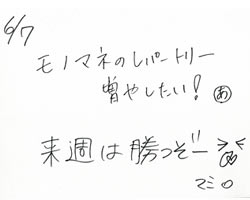 6/7
モノマネのレパートリー
増やしたい! あ
来週は勝つぞー
マミロ